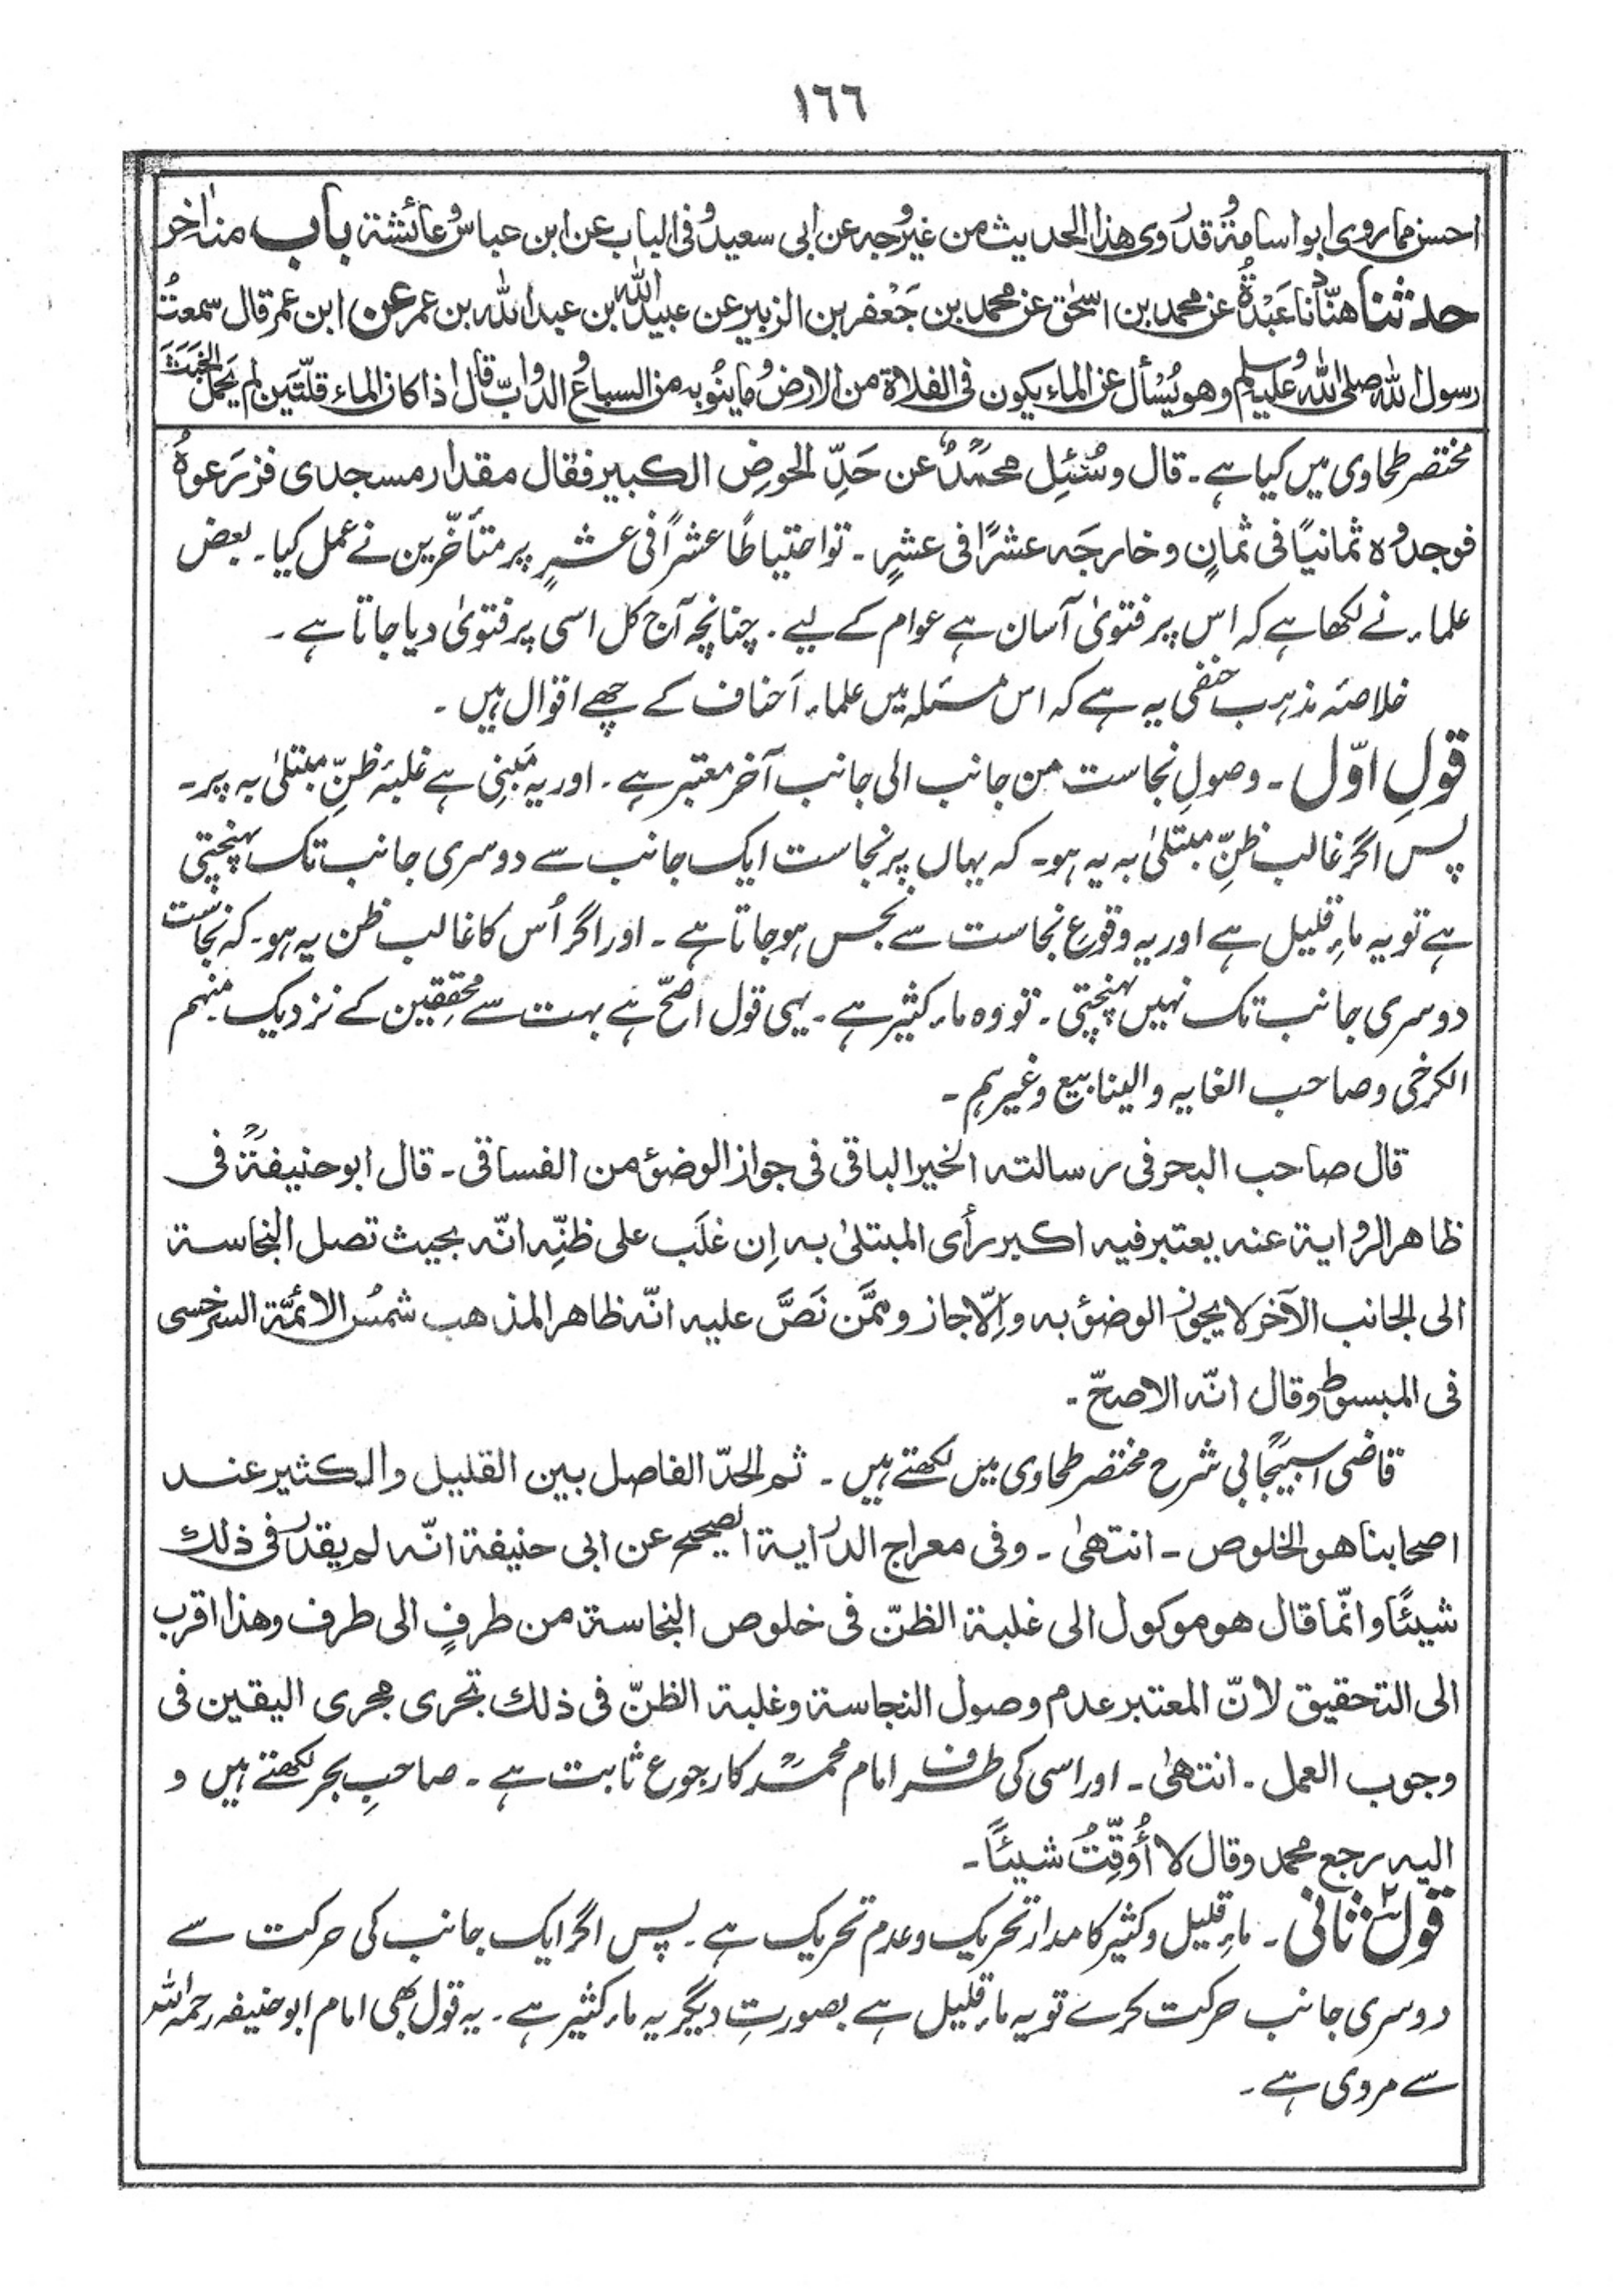 ١٦٦
احسن مما روی ابو اسامۃ وقد روی ھذا الحدیث من غیر وجہ عن ابی سعید وفی الباب عن ابن عباس وعائشۃ باب منہ اٰخر
حدثنا ھنّاد نا عَبْدۃُ عن محمد بن اسحٰق عن محمد بن جَعْفر بن الزبیر عن عبید اللّٰہ بن عبد اللّٰہ بن عمر عن ابن عمر قال سمعتُ
رسول اللّٰہ صلی اللّٰہ علیہ وسلم وھو یُسْأل عن الماء یکون فی الفلاۃ من الارض وما ینُوبہ من السباع والدوابّ قال اذا کان الماء قلّتَین لم یَحمل الخَبَثَ
مختصر طحاوی میں کیا ہے۔ قال وسُئِل محمدٌؒ عن حَدِّ الحوضِ الکبیر فقال مقدار مسجدی فزرَعوہُ
فوجدوہ ثمانیًا فی ثمانٍ وخارجَہ عشرًا فی عشرٍ۔ تو احتیاطًا عشراً فی عشرٍ پر متأخّرین نے عمل کیا۔ بعض
علماء نے لکھا ہے کہ اس پر فتویٰ آسان ہے عوام کے لیے۔ چنانچہ آج کل اسی پر فتویٰ دیا جاتا ہے۔
خلاصۂ مذہب حنفی یہ ہے کہ اس مسئلہ میں علماء اَحناف کے چھے اقوال ہیں۔
قولِ اوّل۔ وصولِ نجاست من جانب الی جانب آخر معتبر ہے۔ اور یہ مَبنِی ہے غلبۂ ظنِّ مبتلیٰ بہ پر۔
پس اگر غالب ظنِّ مبتلیٰ بہ یہ ہو۔ کہ یہاں پر نجاست ایک جانب سے دوسری جانب تک پہنچتی
ہے تو یہ ماءِ قلیل ہے اور یہ وقوعِ نجاست سے نجس ہوجاتا ہے۔ اور اگر اُس کا غالب ظن یہ ہو۔ کہ نجاست
دوسری جانب تک نہیں پہنچتی۔ تو وہ ماء کثیر ہے۔ یہی قول اصحّ ہے بہت سے محققین کے نزدیک منہم
الکرخی وصاحب الغایہ والینابیع وغیرہم۔
قال صاحب البحر فی رسالتہ الخیر الباقی فی جواز الوضؤ من الفساقی۔ قال ابو حنیفۃؒ فی
ظاھر الروایۃ عنہ یعتبر فیہ اکبر رأی المبتلیٰ بہ اِن غلَب علی ظنِّہ انّہ بحیث تصل النجاسۃ
الی الجانب الآخر لا یجوز الوضؤ بہ واِلّا جاز وممَّن نَصَّ علیہ انّہ ظاھر المذھب شمسُ الائمَّۃ السرخسی
فی المبسوط وقال انّہ الاصحّ۔
قاضی اسبیجابیؒ شرح مختصر طحاوی میں لکھتے ہیں۔ ثم الحدّ الفاصل بین القلیل والکثیر عند
اصحابنا ھو الخلوص۔ انتھیٰ۔ وفی معراج الدرایۃ الصحیح عن ابی حنیفۃ انّہ لم یقدّر فی ذلك
شیئًا وانّما قال ھو موکول الی غلبۃ الظنّ فی خلوص النجاسۃ من طرفٍ الی طرف وھذا اقرب
الی التحقیق لانّ المعتبر عدم وصول النجاسۃ وغلبۃ الظنّ فی ذلك تجری مجری الیقین فی
وجوب العمل۔ انتھیٰ۔ اور اسی کی طرف امام محمدؒ کا رجوع ثابت ہے۔ صاحبِ بحر لکھتے ہیں و
الیہ رجع محمد وقال لا أُوَقِّتُ شیئاً۔
قولِ ثانی۲۔ ماءِ قلیل وکثیر کا مدار تحریک وعدم تحریک ہے۔ پس اگر ایک جانب کی حرکت سے
دوسری جانب حرکت کرے تو یہ ماءِ قلیل ہے بصورتِ دیگر یہ ماء کثیر ہے۔ یہ قول بھی امام ابو حنیفہ رحمہ اللہ
سے مروی ہے۔